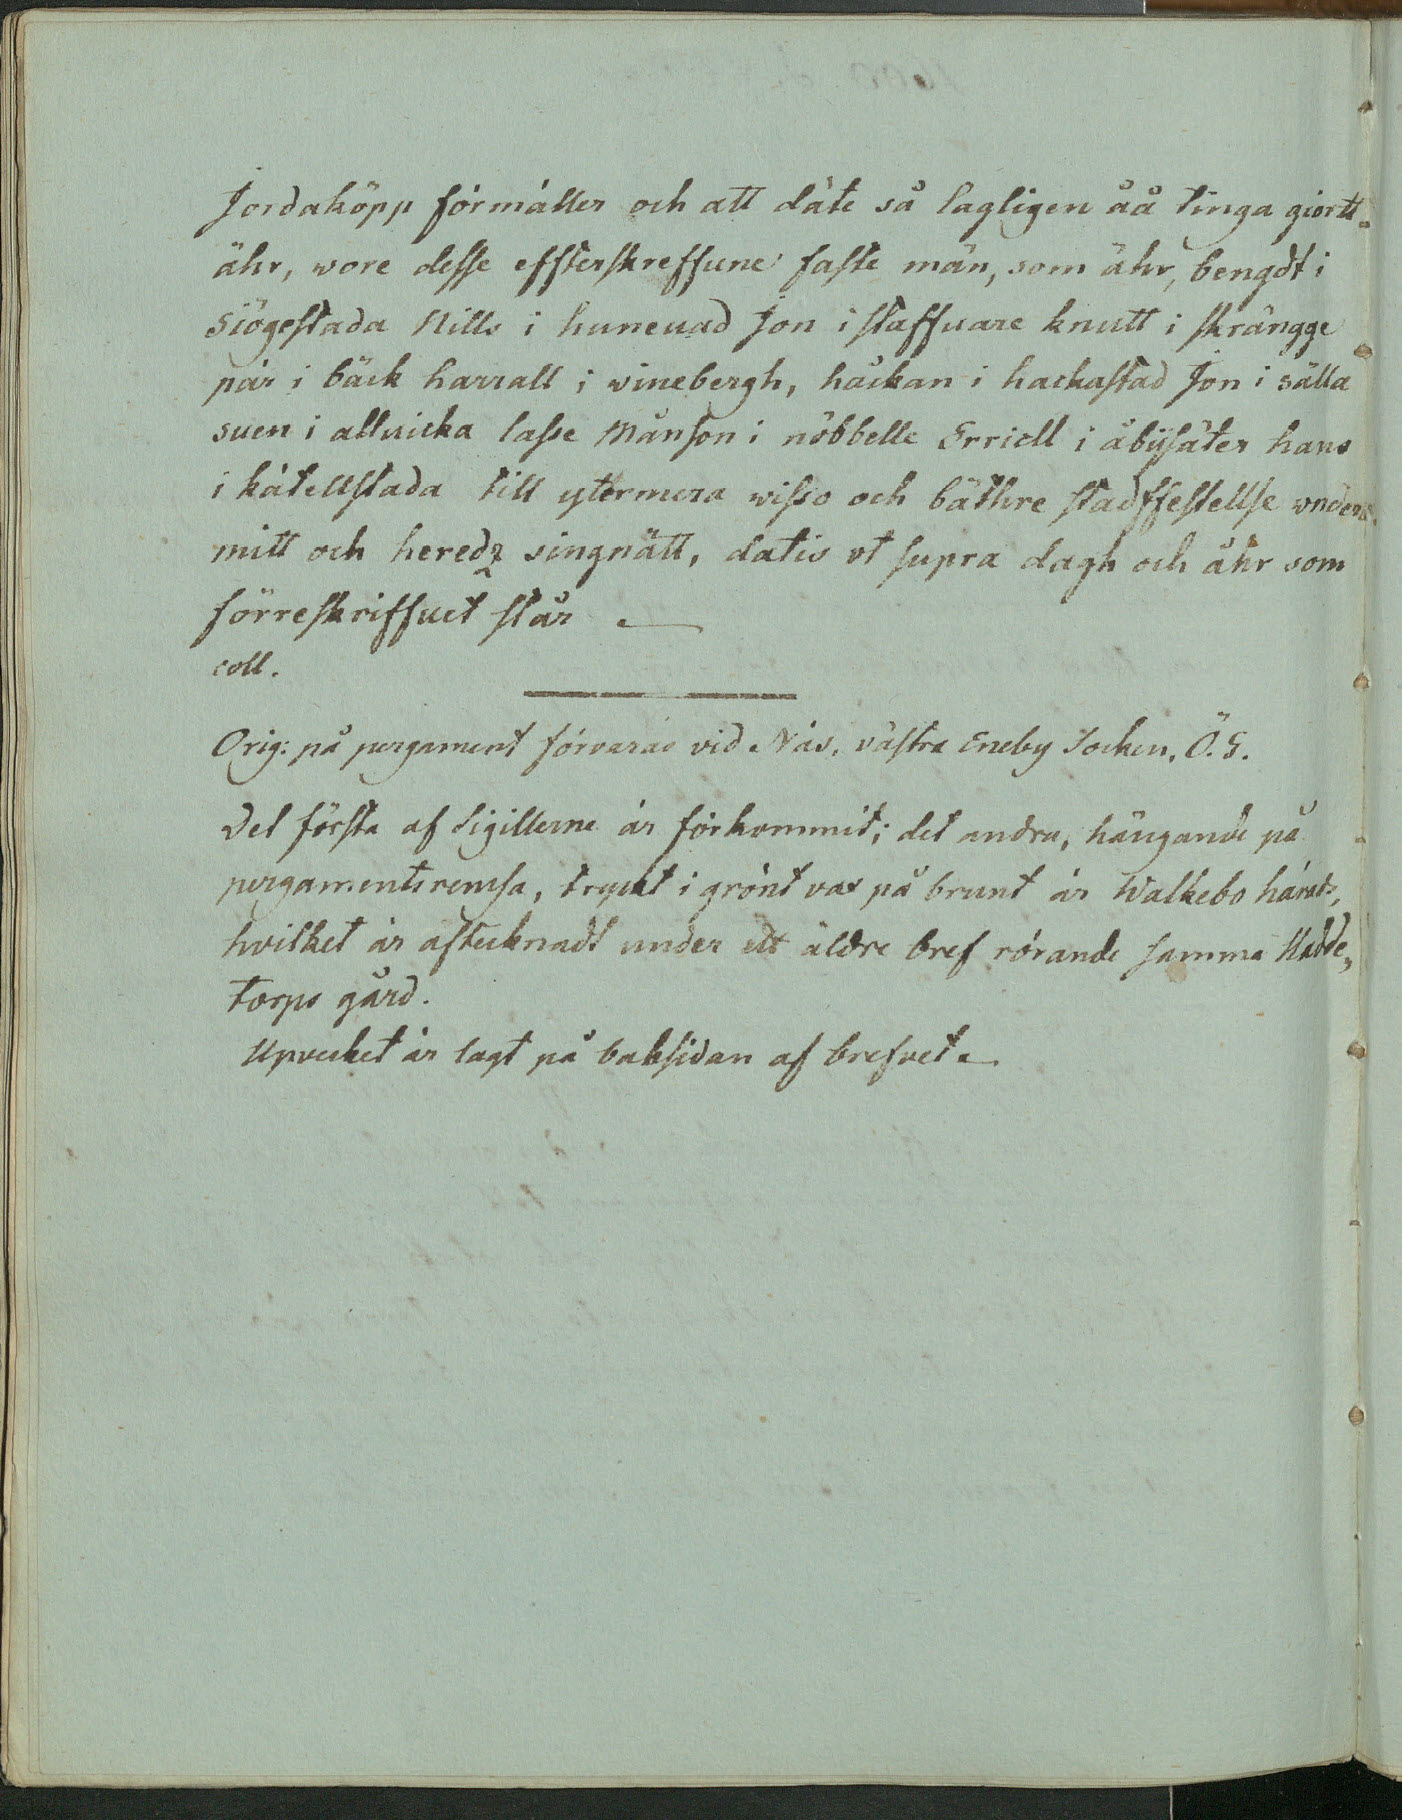 Jordaköpp förmäller och att däte så lagligen åå tinga giortt
ähr, wore desse effterskreffune faste män, som ähr, bengdt i
Siögestada Nills i huneuad Jon i staffuare knutt i skrängge
pär i bäck harrall i winebergh, håckan i hackastad Jon i sälla
suen i alluicka lasse Månson i nöbbelle Erriell i åbÿsäter hans
i kätellstada till ytermera wisso och bäthre stadffestellse vnder
mitt och heredz singnätt, datis vt supra dagh och åhr som
förreskriffuet står
coll.
Orig: på pergament förvaras vid Näs, västra Eneby Socken, Ö.G.
Det första af Sigillerne är förkommit; det andra, hängande på
pergamentsremsa, tryckt i grönt vax på brunt är Walkebo härads,
hvilket är aftecknadt under ett äldre bref rörande samma Hadde„
torps gård.
Upvecket är lagt på baksidan af brefvet.